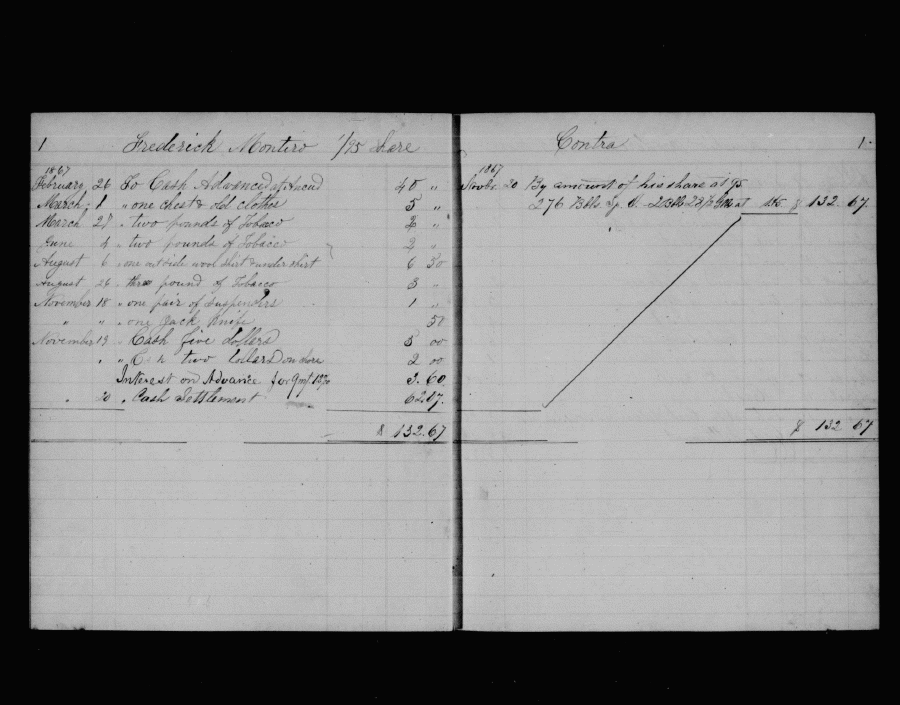 1 Frederick Montiro 1/95 Share
1867
February 26 To Cash Advanced at 40 "
March 1 " one chest & old clothes 5 "
March 27 " two pounds of Tobaco 2 "
June 4 " two pounds of Tobacco 2 "
August 6 " one out side wool shirt & under shirt 6 50
August 26 " three pound of Tobacco 3 "
November 18 " one pair of Suspenders 1 "
" " " one Jack Knife 50
November 19 " Cash five dollers 5 00
" " two Dollars on shore 2 00
Interest on Advance for 9 m 3.60
" 20 " Cash Settlement 62.07
$ 132.67
Contra 1
1867
Novbr 20 By amount of his share 1/95
276 Bbls Sp. O. $ 132. 67
$ 132 67